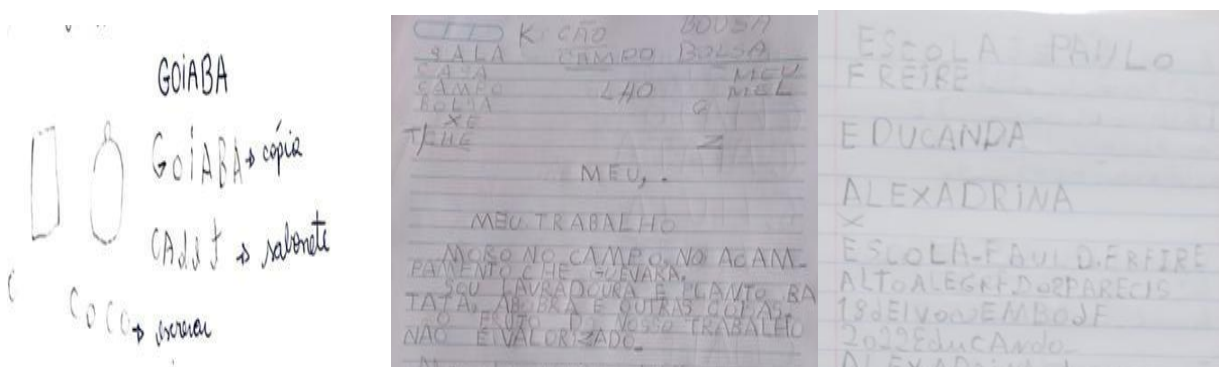 GOiABA
GOiABA → cópia
→ sabonete
COCO →
K CÃO BOUSA
SALA CAMPO BOLSA
CASA MEU
CAMPO LHO MEL
BOLSA
XE
Z
MEU, .
MEU TRABALHO
MORO NO CAMPO, NO ACAM-
PAMENTO CHE GUEVARA.
SOU LAVRADOURA E PLANTO BA
TATA, ABOBRA E OUTRAS
O NOSSO TRABALHO
NÃO EIVALORIZADO.
ESCOLA PAULO
FREIRE
EDUCANDA
ALEXADRINA
X
ESCOLA-PAULO.FREIRE
ALTOALEGRE.DOSPARECIS
18 dE
2022EduCANdo-